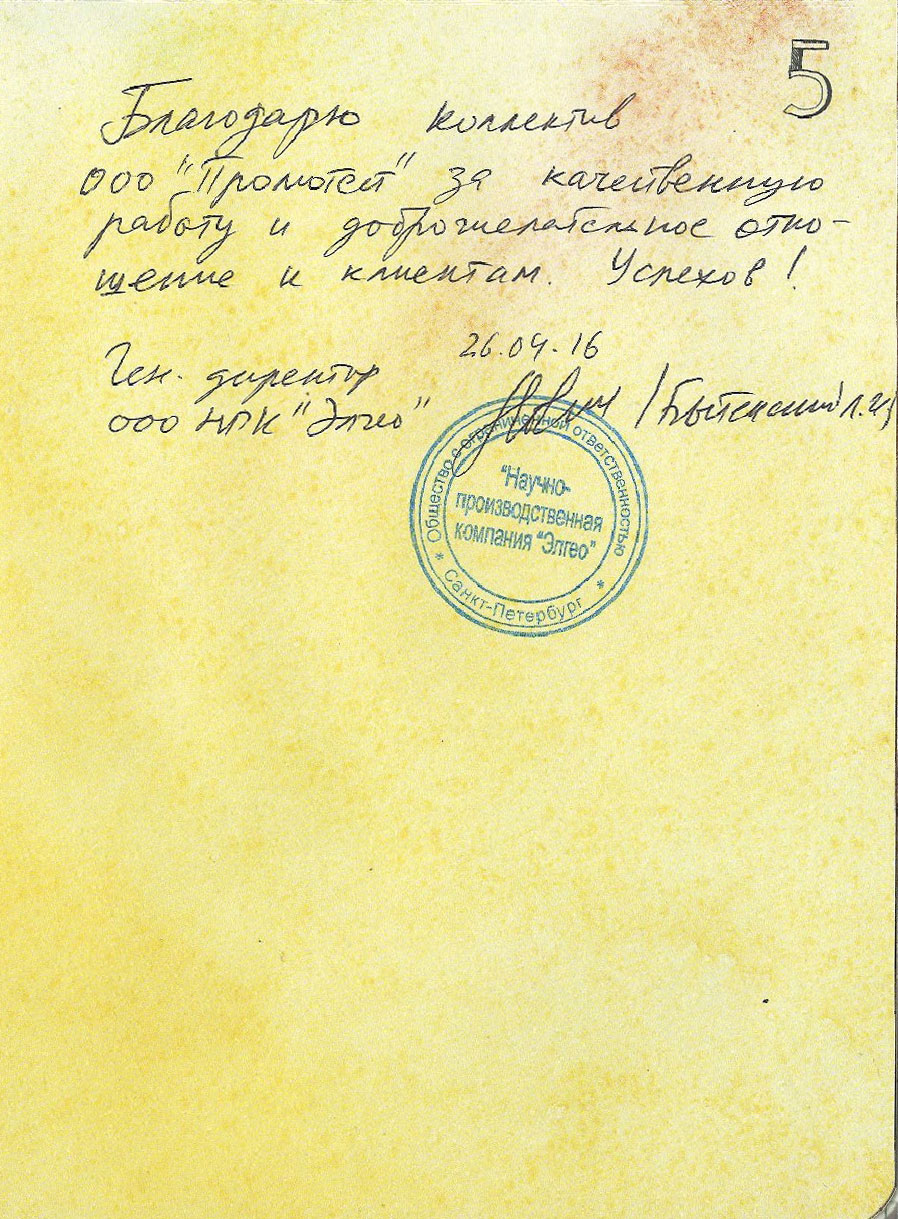 5
Благодарю коллектив
ООО "Промотет" за качественную
работу и доброжелательное отно-
шение к клиентам. Успехов!
26.04.16
Ген. директор
ООО НПК "Элгео"
Л.И.
Общество с ограниченной ответственностью
"Научно-
производственная
компания "Элгео"
* Санкт-Петербург *